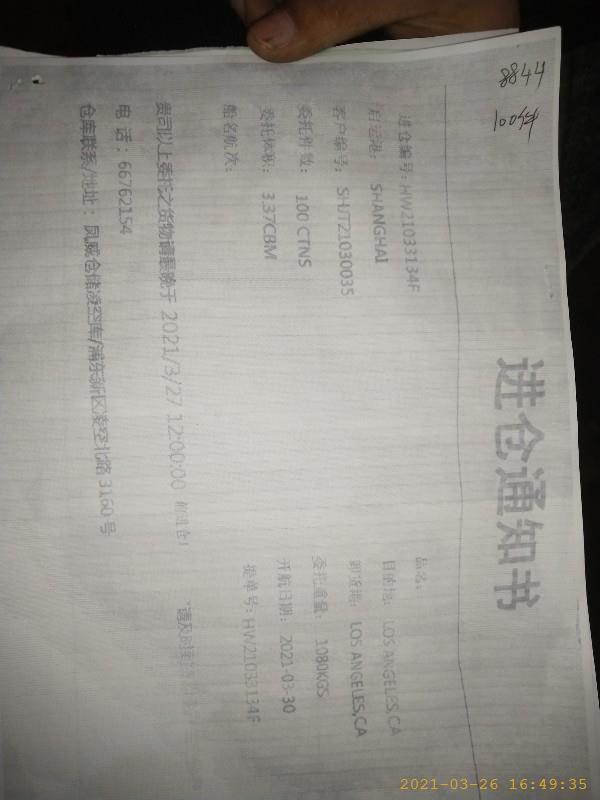 8844
100件
进仓通知书
进仓编号：HW21033134F
品名：
启运港：SHANGHAI
目的地：LOS ANGELES,CA
客户编号：SHJT21030035
卸货港：LOS ANGELES,CA
委托件数：100 CTNS
委托重量：1080KGS
委托体积：3.37CBM
开航日期：2021-03-30
船名航次：
提单号：HW21033134F
贵司以上委托之货物请最晚于 2021/3/27 12:00:00 前进仓!
请及时
电 话：66762154
仓库联系/地址：凤威仓储凌空库/浦东新区凌空北路3160号
2021-03-26 16:49:35